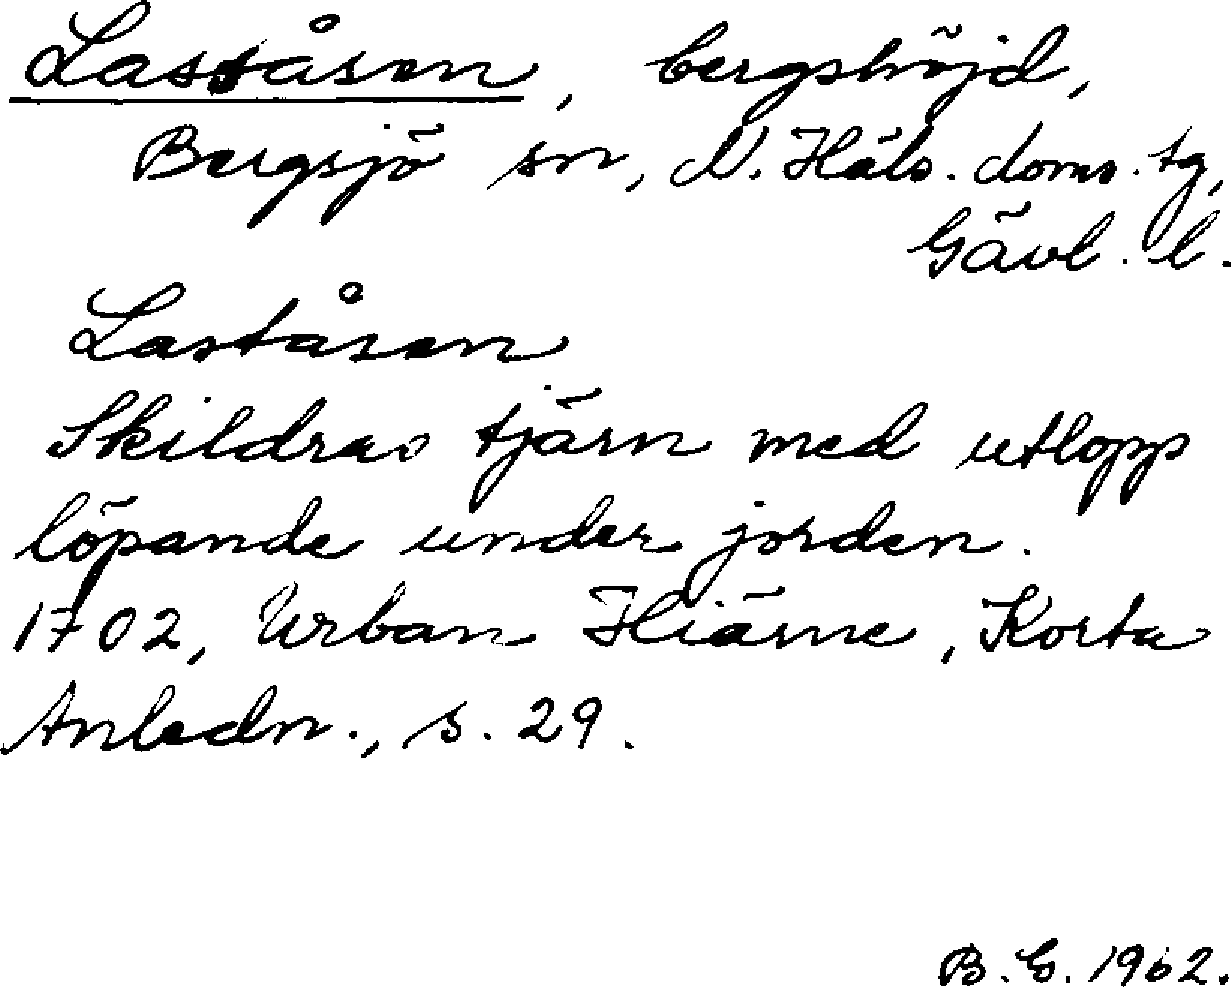 Lassåsen, bergshöjd,
Bergsjö sn, N. Häls. doms. tg,
Gävl. l.
Laståsen
Skildras tjärn med utlopp
löpande under jorden.
1702, Urban Hiärne, Korta
Anledn., s. 29.
B. G. 1962.